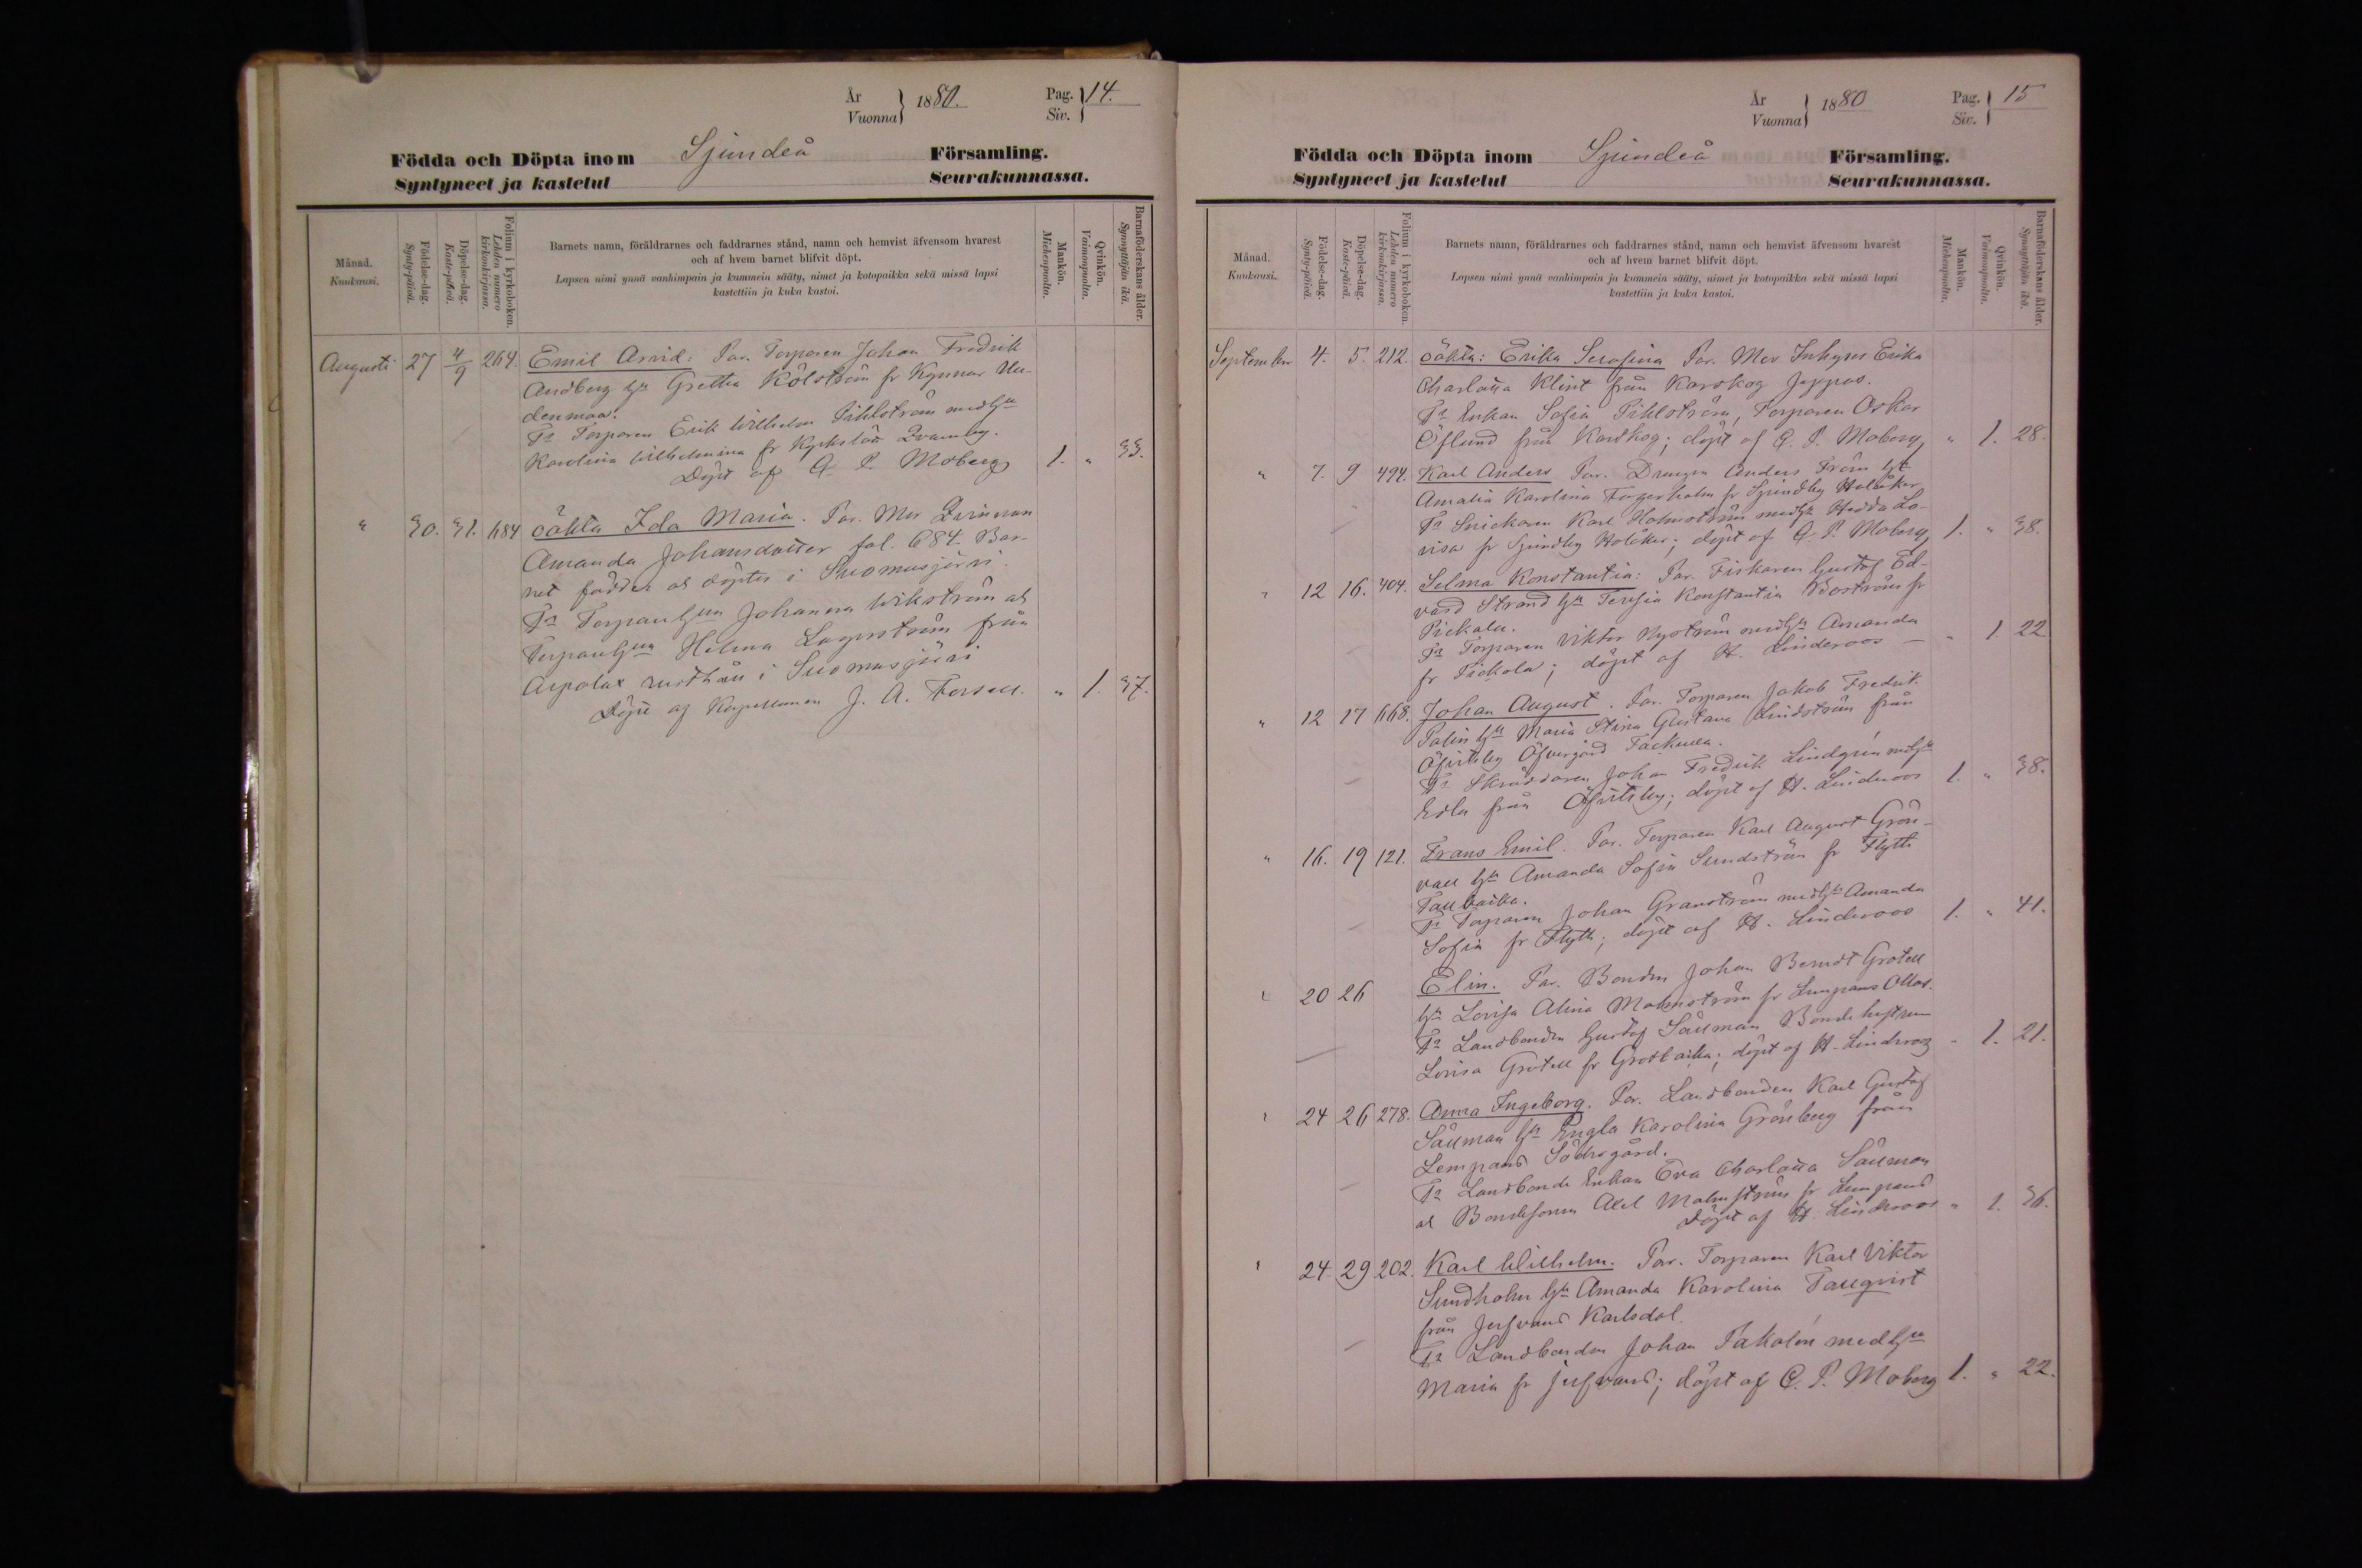 År
Vuonna
1880.
Pag.
Siv.
14.
Födda och Döpta inom Sjundeå Församling.
Syntyneet ja kastetut Seurakunnassa.
Månad.
Kuukausi.
Födelse-dag.
Synty-päivä.
Döpelse-dag.
Kaste-päivä.
Folium i kyrkoboken.
Lehden numero kirkonkirjassa.
Barnets namn, föräldrarnes och faddrarnes stånd, namn och hemvist äfvensom hvarest
och af hvem barnet blifvit döpt.
Lapsen nimi ynnä vanhimpain ja kummein sääty, nimet ja kotopaikka sekä missä lapsi
kastettiin ja kuka kastoi.
Mankön.
Miehenpuolta.
Qvinkön.
Vaimonpuolta.
Barnaföderskans ålder.
Synnyttäjän ikä.
Augusti 27 4/9 264. Emil Arvid: Par. Torparen Johan Fredrik
Andberg hu Gretha Kölström fr Kynnar Uu-
denmaa.
Fr Torparen Erik Wilhelm Pihlström med hu
Karolina Wilhelmina fr Kyrkslätt
Döpt af C. P. Moberg 1. " 33.
" 30. 31. 684 oäkta Ida Maria. Par. Mor Qvinnan
Amanda Johansdotter fol. 684. Bar-
net föddes och döptes i Suomusjärvi.
Fr Torparehun Johanna Wikström och
Torparehun Helma Lagerström från
Arpolax rusthåll i Suomusjärvi
Döpt af Kapellanen J. A. Forsell. " 1. 37.
År
Vuonna
1880
Pag.
Siv.
15
Födda och Döpta inom Sjundeå Församling.
Syntyneet ja kastetut Seurakunnassa.
Månad.
Kuukausi.
Födelse-dag.
Synty-päivä.
Döpelse-dag.
Kaste-päivä.
Folium i kyrkoboken.
Lehden numero kirkonkirjassa.
Barnets namn, föräldrarnes och faddrarnes stånd, namn och hemvist äfvensom hvarest
och af hvem barnet blifvit döpt.
Lapsen nimi ynnä vanhimpain ja kummein sääty, nimet ja kotopaikka sekä missä lapsi
kastettiin ja kuka kastoi.
Mankön.
Miehenpuolta.
Qvinkön.
Vaimonpuolta.
Barnaföderskans ålder.
Synnyttäjän ikä.
September 4. 5. 212. oäkta: Erika Serafina Par. Mor Inhyses Erika
Charlotta Klint från Karskog Jeppas.
Fr Enkan Sofia Pihlström, Torparen Oskar
Öflund från Karskog; döpt af C. P. Moberg " 1. 28.
" 7. 9 494. Karl Anders Par. Drängen Anders Fröm hu
Amalia Karolina Fagerholm fr Sjundby Holåker
Fr Snickaren Karl Holmström med hu Hedda Lo-
visa fr Sjundby Holåker; döpt af C. P. Moberg 1. " 38.
" 12 16. 404. Selma Konstantia: Par. Fiskaren Gustaf Ed-
vard Strand hu Teresia Konstantia Boström fr
Pickala.
Fr Torparen Viktor Nyström med hu Amanda
fr Pickala; döpt af H. Linderoos – " 1. 22
" 12 17 668. Johan August. Par. Torparen Jakob Fredrik
Palin hu Maria Stina Gustava Lindström från
Öfvitsby Öfvergård Täckulla.
Fr Skräddaren Johan Fredrik Lindgren med hu
Edla från Öfvitsby; döpt af H. Linderoos 1. " 38.
" 16. 19 121. Frans Emil. Par. Torparen Karl August Grön-
vall hu Amanda Sofia Sundström fr Flyth
Fr Torparen Johan Granström med hu Amanda
Sofia fr Flyth; döpt af H. Linderoos 1. " 41.
" 20 26 Elin. Par. Bonden Johan Berndt Grotell
hu Lovisa Alina Malmström fr Lempans Ollas.
Fr Landbonden Gustaf Sällman Bondehustrun
Lovisa Grotell fr Grotbacka; döpt af H. Linderoos – 1. 21.
" 24 26 278. Anna Ingeborg. Par. Landbonden Karl Gustaf
Sällman hu Engla Karolina Grönberg från
Lempans Södergård.
Fr Landbonde Enkan Eva Charlotta Sällman
och Bondesonen Axel Malmström fr Lempans
Döpt af H. Linderoos " 1. 36.
" 24 29 202. Karl Wilhelm. Par. Torparen Karl Viktor
Sundholm hu Amanda Karolina Tallqvist
från Jerfvans Karlsdal.
Fr Landbonden Johan Pakalén med hu
Maria fr Jerfvans; döpt af C. P. Moberg 1. " 22.